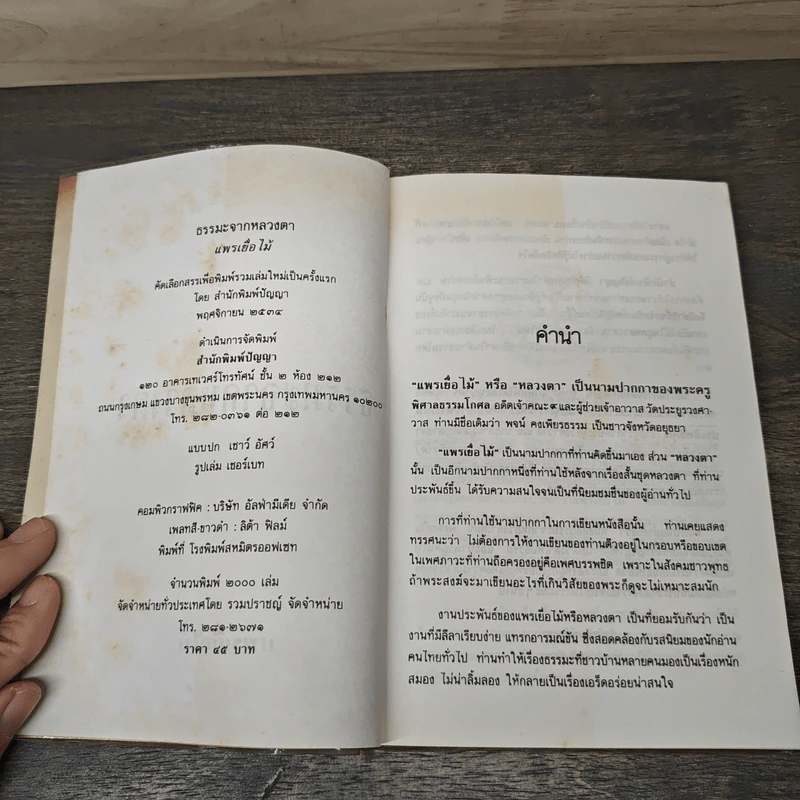 ธรรมะจากหลวงตา
แพรเยื่อไม้
คัดเลือกสรรเพื่อพิมพ์รวมเล่มใหม่เป็นครั้งแรก
โดย สำนักพิมพ์ปัญญา
พฤศจิกายน ๒๕๓๔
ดำเนินการจัดพิมพ์
สำนักพิมพ์ปัญญา
๑๒๐ อาคารเทเวศร์โทรทัศน์ ชั้น ๒ ห้อง ๒๑๒
ถนนกรุงเกษม แขวงบางขุนพรหม เขตพระนคร กรุงเทพมหานคร ๑๐๒๐๐
โทร. ๒๘๒-๐๓๖๑ ต่อ ๒๑๒
แบบปก เชาว์ อัศว์
รูปเล่ม เชอร์เบท
คอมพิวกราฟฟิค : บริษัท อัลฟ่ามีเดีย จำกัด
เพลทสี-ขาวดำ : ลิต้า ฟิลม์
พิมพ์ที่ โรงพิมพ์สหมิตรออฟเซท
จำนวนพิมพ์ ๒๐๐๐ เล่ม
จัดจำหน่ายทั่วประเทศโดย รวมปราชญ์ จัดจำหน่าย
โทร. ๒๘๑-๒๖๗๑
ราคา ๔๕ บาท
คำนำ
"แพรเยื่อไม้" หรือ "หลวงตา" เป็นนามปากกาของพระครู
พิศาลธรรมโกศล อดีตเจ้าคณะ๙และผู้ช่วยเจ้าอาวาส วัดประยูรวงศา-
วาส ท่านมีชื่อเดิมว่า พจน์ คงเพียรธรรม เป็นชาวจังหวัดอยุธยา
"แพรเยื่อไม้" เป็นนามปากกาที่ท่านคิดขึ้นมาเอง ส่วน "หลวงตา"
นั้น เป็นอีกนามปากกาหนึ่งที่ท่านใช้หลังจากเรื่องสั้นชุดหลวงตา ที่ท่าน
ประพันธ์ขึ้น ได้รับความสนใจจนเป็นที่นิยมชมชื่นของผู้อ่านทั่วไป
การที่ท่านใช้นามปากกาในการเขียนหนังสือนั้น ท่านเคยแสดง
ทรรศนะว่า ไม่ต้องการให้งานเขียนของท่านตีวงอยู่ในกรอบหรือขอบเขต
ในเพศภาวะที่ท่านถือครองอยู่คือเพศบรรพชิต เพราะในสังคมชาวพุทธ
ถ้าพระสงฆ์จะมาเขียนอะไรที่เกินวิสัยของพระก็ดูจะไม่เหมาะสมนัก
งานประพันธ์ของแพรเยื่อไม้หรือหลวงตา เป็นที่ยอมรับกันว่า เป็น
งานที่มีลีลาเรียบง่าย แทรกอารมณ์ขัน ซึ่งสอดคล้องกับรสนิยมของนักอ่าน
คนไทยทั่วไป ท่านทำให้เรื่องธรรมะที่ชาวบ้านหลายคนมองเป็นเรื่องหนัก
สมอง ไม่น่าลิ้มลอง ให้กลายเป็นเรื่องเอร็ดอร่อยน่าสนใจ